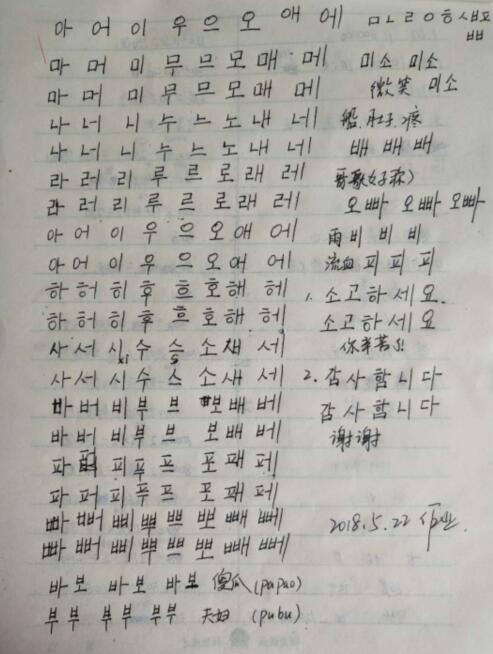 아 어 이 우 으 오 애 에 ㅁㄴㄹㅇㅎㅅㅂㅍ
ㅃ
마 머 미 무 므 모 매 메 미소 미소
마 머 미 무 므 모 매 메 微笑 미소
나 너 니 누 느 노 내 네 船、肚子、疼
나 너 니 누 느 노 내 네 배 배 배
라 러 리 루 르 로 래 레 哥
라 러 리 루 르 로 래 레 오빠 오빠 오빠
아 어 이 우 으 오 애 에 雨 비 비 비
아 어 이 우 으 오 애 에 流血 피 피 피
하 허 히 후 흐 호 해 헤 1. 소고하세요.
하 허 히 후 흐 호 해 헤 소고하세요
사 서 시 수 스 소 새 세 你辛苦了
xi s
사 서 시 수 스 소 새 세 2. 감사합니다
바 버 비 부 브 보 배 베 감사합니다
바 버 비 부 브 보 배 베 谢谢
파 퍼 피 푸 프 포 패 페
파 퍼 피 푸 프 포 패 페
빠 뻐 삐 뿌 쁘 뽀 빼 뻬 2018.5.22 作业
빠 뻐 삐 뿌 쁘 뽀 빼 뻬
바보 바보 바보 傻瓜 (papao)
부부 부부 부부 夫妇 (pubu)